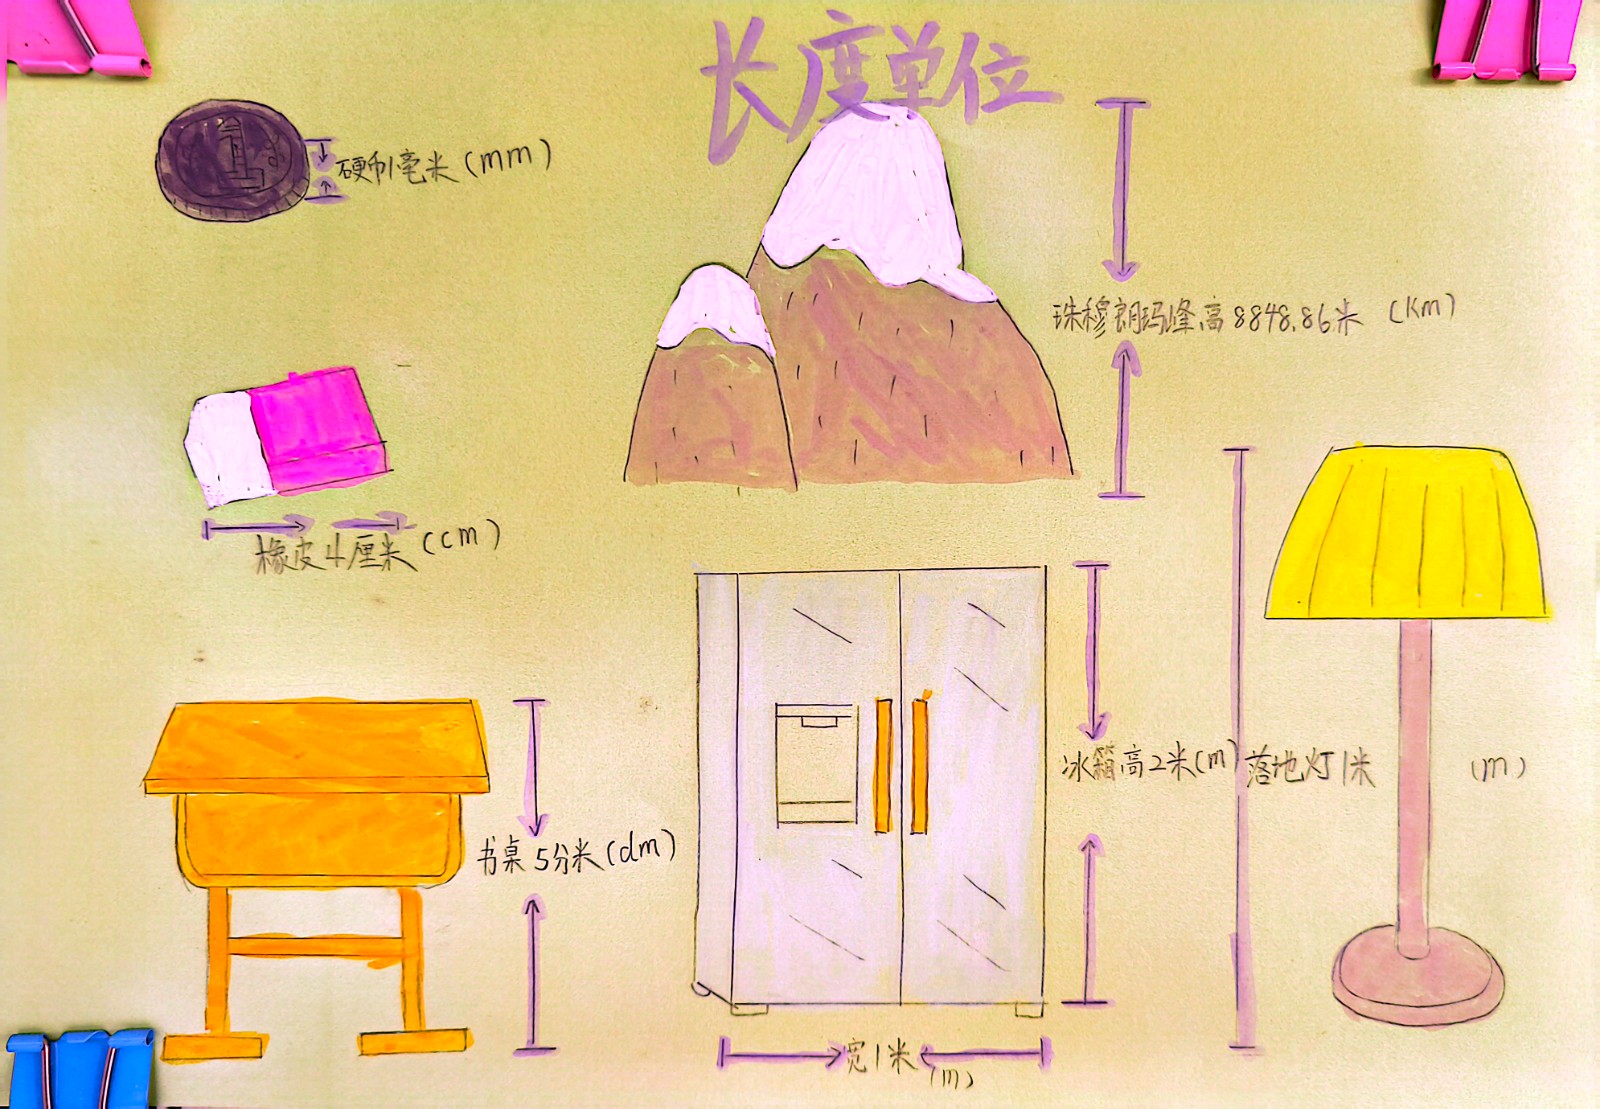 长度单位
硬币1毫米(mm)
珠穆朗玛峰高8848.86米 (km)
橡皮4厘米(cm)
冰箱高2米(m)
落地灯1米 (m)
书桌5分米(dm)
宽1米
(m)